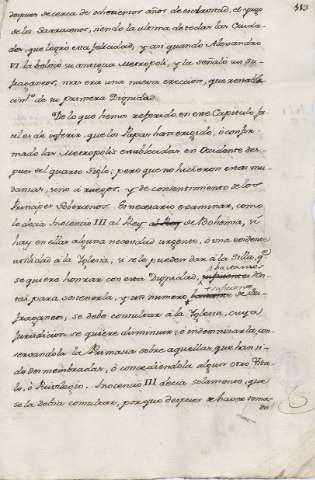 113
despues de cerca de ochocientos años de esclavitud, el yugo
de los Sarracenos, siendo la ultima de todas las Ciuda-
des, que logró esta felicidad, y aun quando Alexandro
VI. la bolvió su antigua Metropoli, y la señaló sus Su-
fraganeos, mas era una nueva ereccion, que renobla-
cion de su primera Dignidad.
De lo que hemos referido en este Capitulo fa-
cil es de inferir, que los Papas han erigido, ó confir-
mado las Metropolis establecidas en Occidente des-
pues del quarto Siglo, pero que no hicieron estas mu-
danzas, sino á ruegos, y de consentimiento de los
Principes Soberanos. Es necesario examinar, como
lo decia Inocencio III al Rey de Bohemia, si
hay en ellas alguna necesidad urgente, ó una evidente
utilidad á la Iglesia, si se lo pueden dar á la Silla, qe.
se quiere honrar con esta Dignidad, bastantes Ren-
tas para sostenerla, y un numero suficiente de Su-
fraganeos, se debe consultar á la Iglesia, cuya
Jurisdiccion se quiere disminuir é indemnizarla, con-
servandola la Primacia sobre aquellas que han si-
do desmembradas, ó concediendola algun otro Titu-
lo, ó Privilegio. Inocencio III decia solamente, que
se la debia consultar, porque despues de haver toma-
do